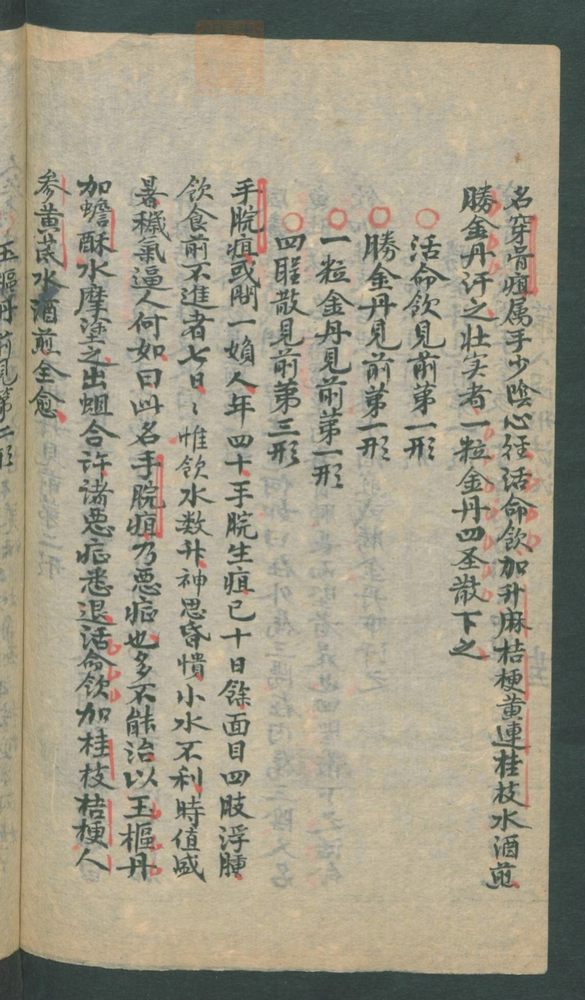 名穿骨疽属手少陰心经活命飲加升麻桔梗黄連桂枝水酒煎
勝金丹汗之壮实者一粒金丹四圣散下之
○活命飲見前第一形
○勝金丹見前第一形
○一粒金丹見前第一形
○四聖散見前第三形
手腕疽或問一媍人年四十手腕生疽已十日餘面目四肢浮腫
飲食前不進者七日〻惟飲水数升神思昏憒小水不利時值盛
暑穢氣逼人何如曰此名手腕疽乃恶症也多不能治以玉樞丹
加蟾酥水摩塗之出蛆合许诸恶症悉退活命飲加桂枝桔梗人
参黄芪水酒煎全愈
玉樞丹前見第二形